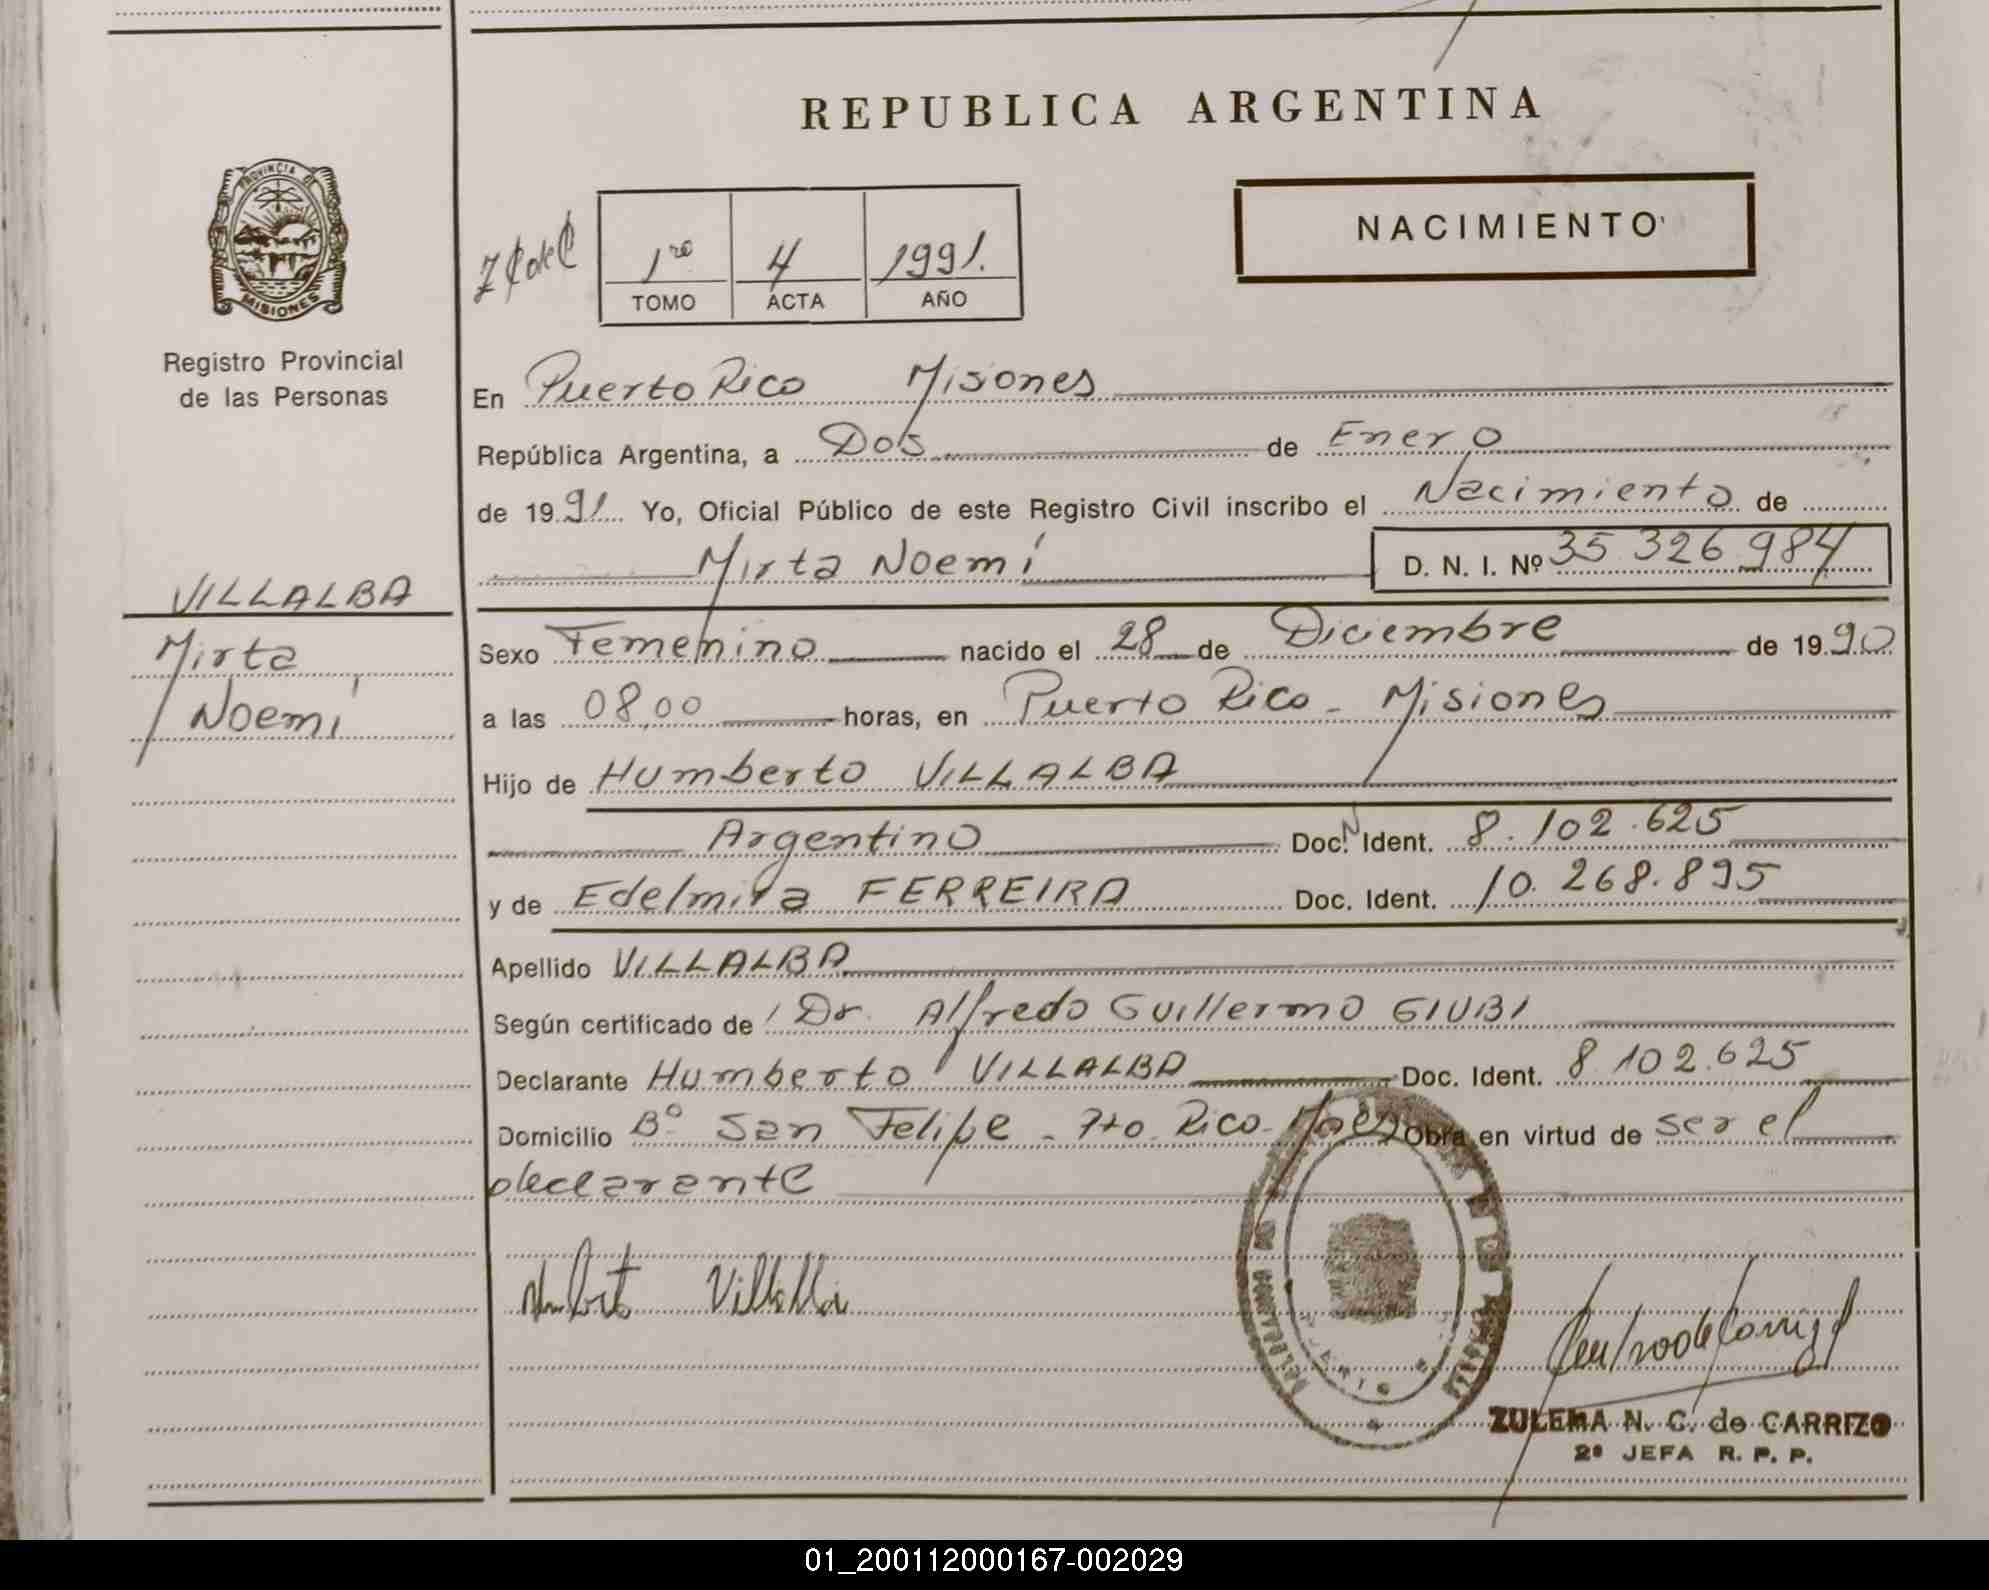 REPUBLICA ARGENTINA
PROVINCIA DE
MISIONES
Registro Provincial
de las Personas
NACIMIENTO
1ro 4 1991.
TOMO ACTA AÑO
En Puerto Rico Misones
República Argentina, a Dos de Enero
de 1991 Yo, Oficial Público de este Registro Civil inscribo el Nacimiento de
Mirta Noemí D. N. I. Nº 35 326 984
VILLALBA
Mirta
Noemí
Sexo Femenino nacido el 28 de Diciembre de 1990
a las 08,00 horas, en Puerto Rico - Misiones
Hijo de Humberto VILLALBA
Argentino Doc. N Ident. 8.102.625
y de Edelmira FERREIRA Doc. Ident. 10.268.895
Apellido VILLALBA
Según certificado de Dr. Alfredo Guillermo GIUBI
Declarante Humberto VILLALBA Doc. Ident. 8.102.625
Domicilio Bº San Felipe - Pto. Rico - Mnes Obra en virtud de ser el
declarante
Humberto Villalba
ZULEMA N. C. de CARRIZO
2º JEFA R. P. P.
01_200112000167-002029